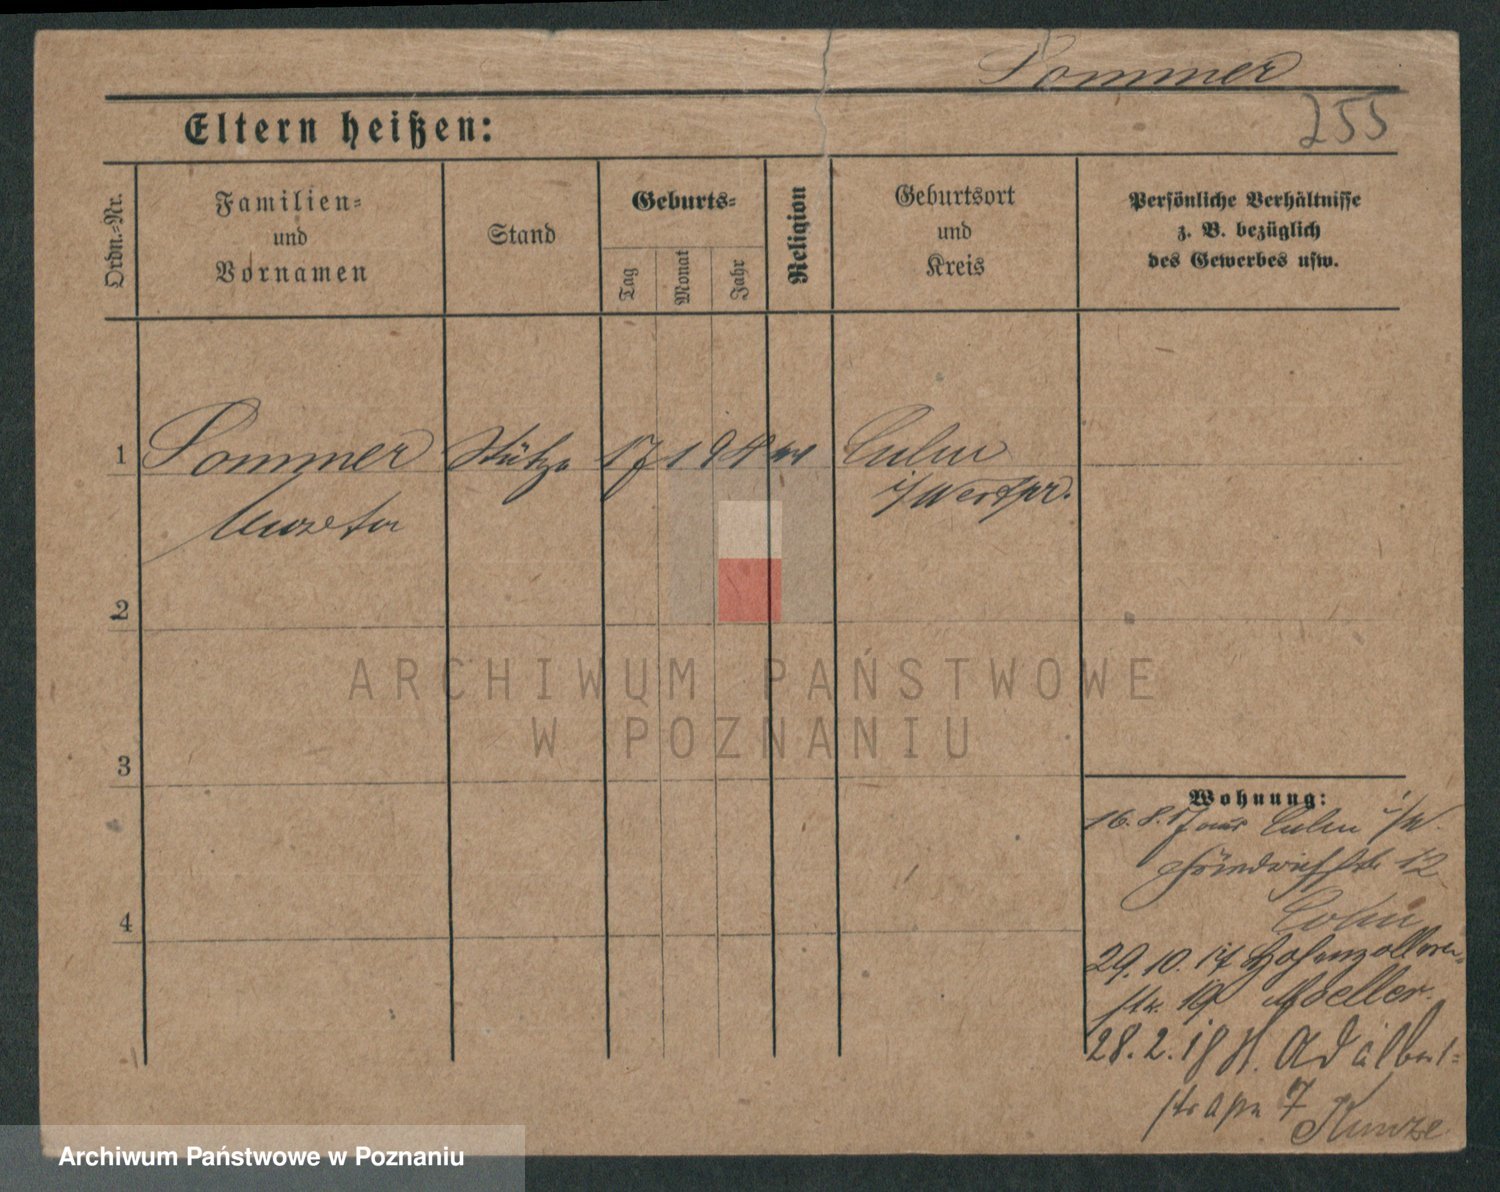 Sommer
255
Eltern heißen:
Ordn.-Nr.
Familien-
und
Vornamen
Stand
Geburts-
Tag
Monat
Jahr
Religion
Geburtsort
und
Kreis
Persönliche Verhältnisse
z. B. bezüglich
des Gewerbes usw.
1
Sommer
Stütze
17 1 94
Culm
i/Westpr.
2
3
4
ARCHIWUM PAŃSTWOWE
W POZNANIU
Wohnung:
16.8.17 aus Culm i/W.
Friedrichstr. 12
29.10.17 Hohenzollern-
str. 19 Moeller.
28.2.18 St. Adalbert-
straße 7
Kunze
Archiwum Państwowe w Poznaniu